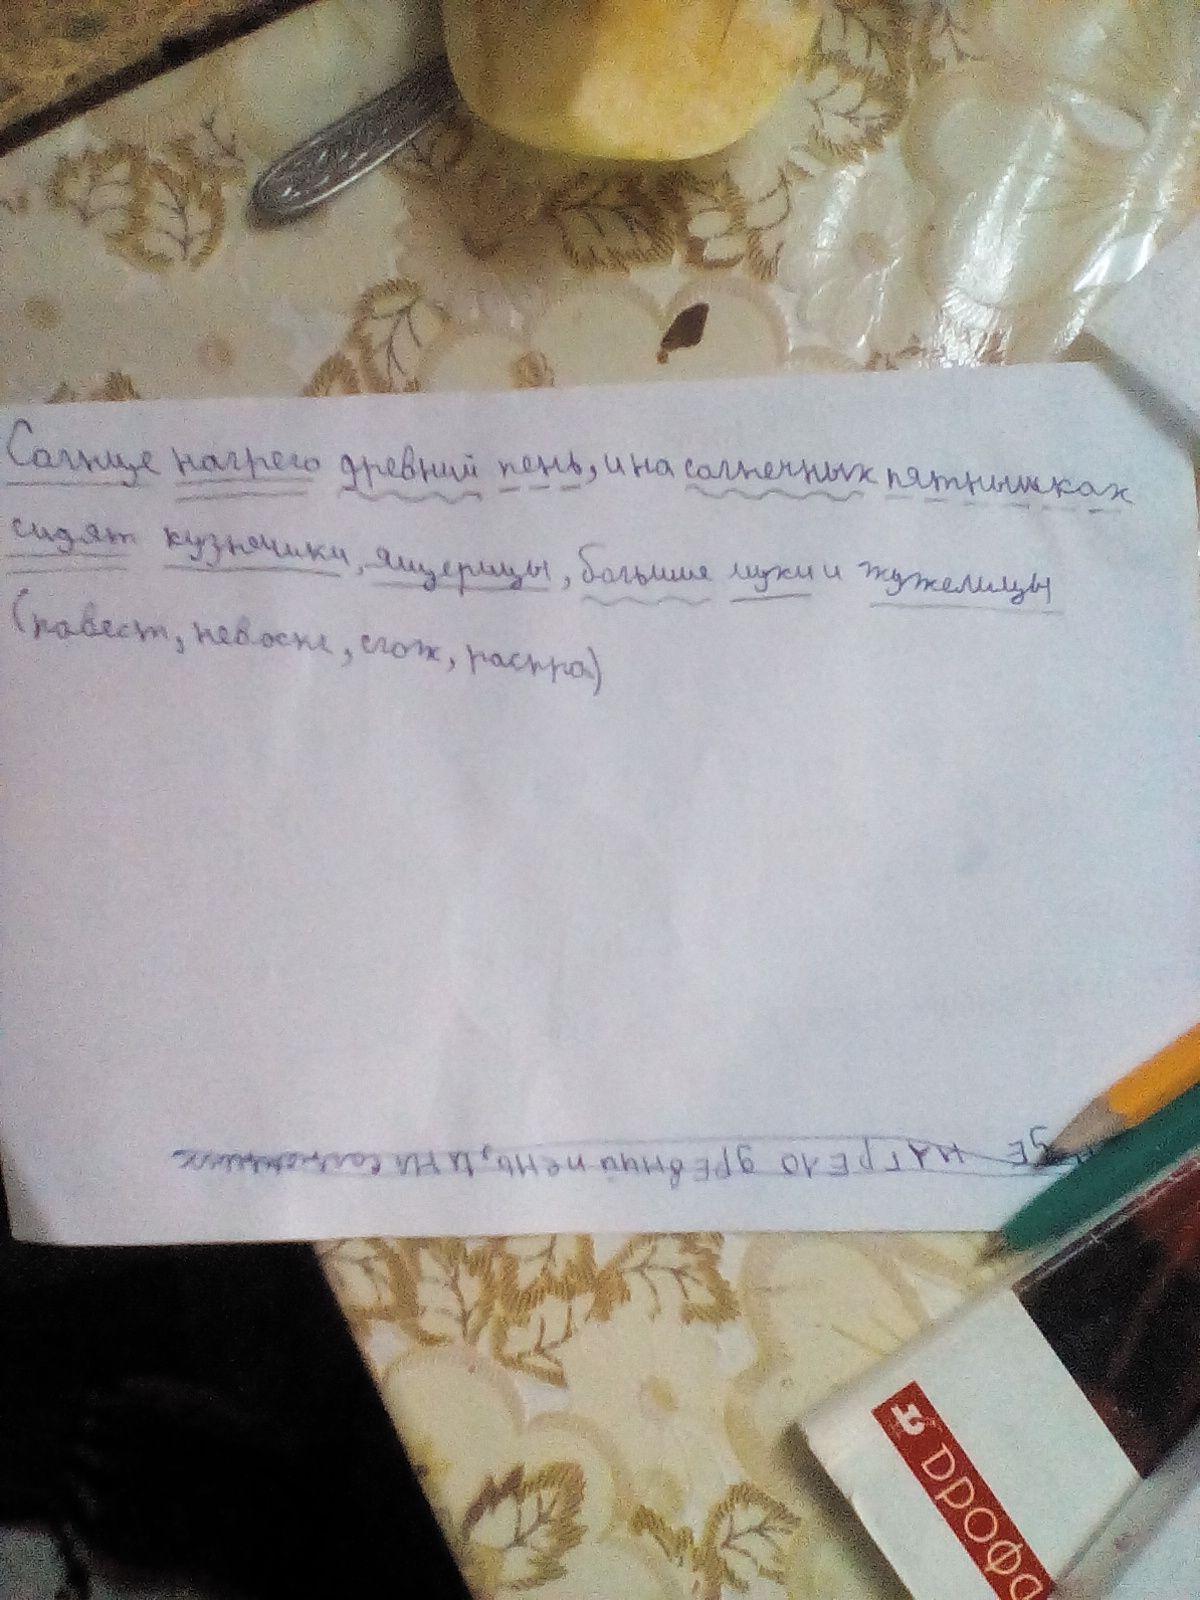 Солнце нагрело древний пень, и на солнечных пятнышках
сидят кузнечики, ящерицы, большие мухи и жужелицы
(повест, невоскл, слож, распро)
це НАГРЕЛО ДРЕВНИЙ пень, и на солнечных
ДРОФА